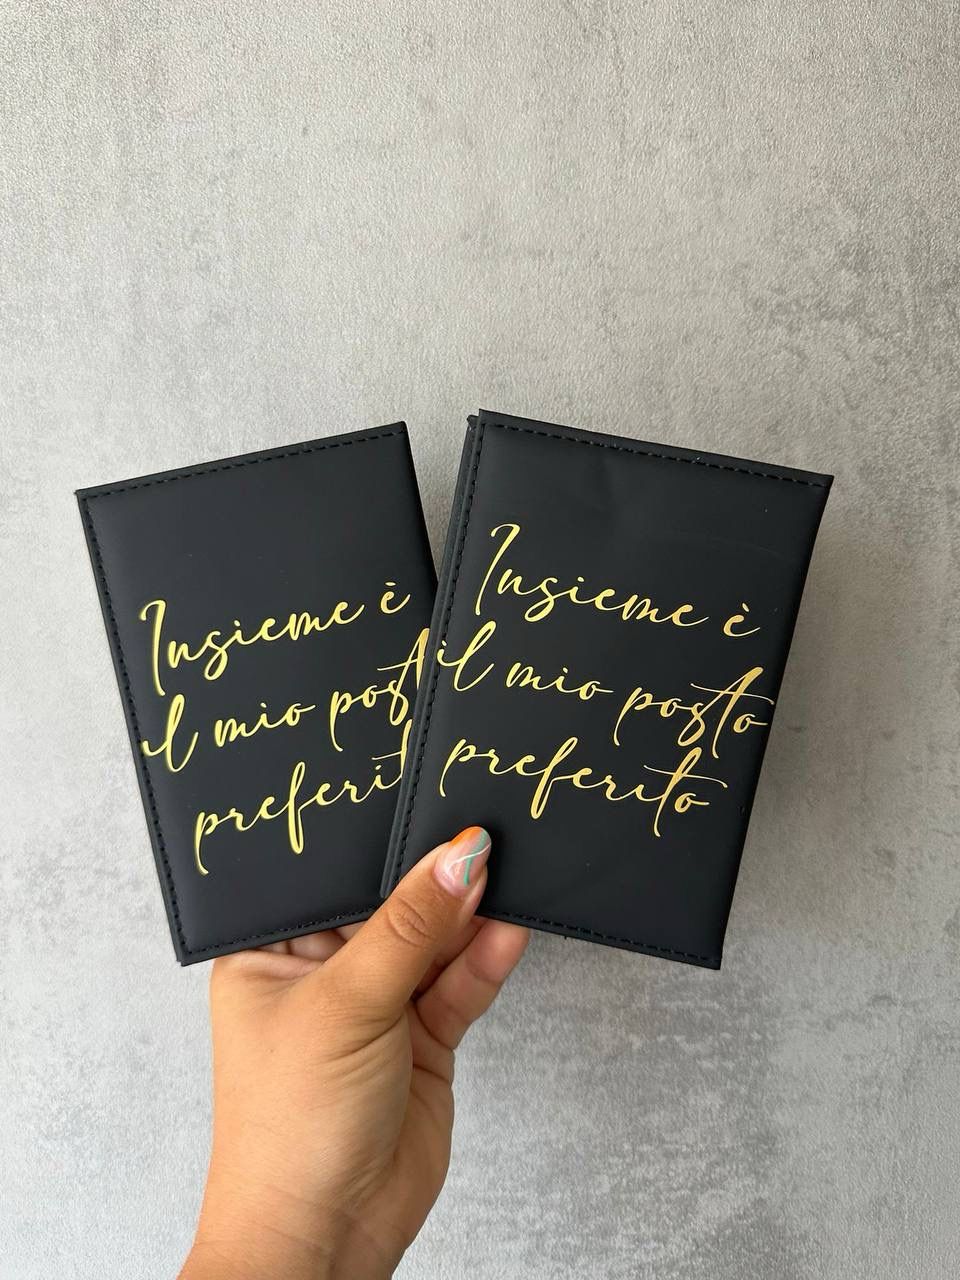 Insieme è
il mio posto
preferito
Insieme è
il mio posto
preferito